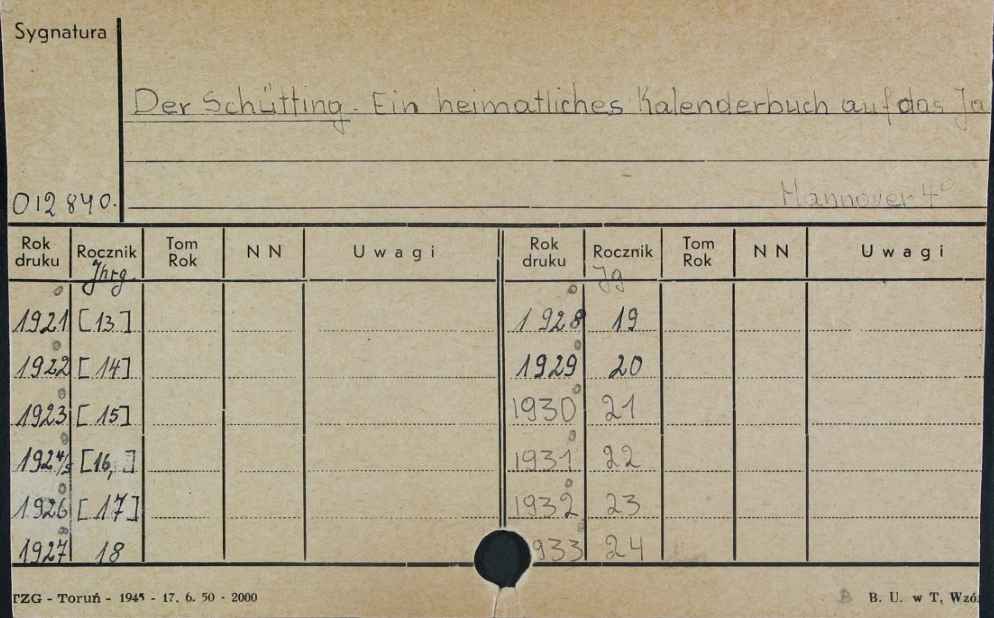 Sygnatura
Der Schütting. Ein heimatliches Kalenderbuch auf das Ja
Hannover 4°
012840.
Rok druku Rocznik Tom Rok NN Uwagi Rok druku Rocznik Tom Rok NN Uwagi
Jhrg. Jg
1921 [13] 1928 19
1922 [14] 1929 20
1923 [15] 1930 21
1924/5 [16,] 1931 22
1926 [17] 1932 23
1927 18 933 24
TZG - Toruń - 1945 - 17. 6. 50 - 2000 B B. U. w T, Wzó